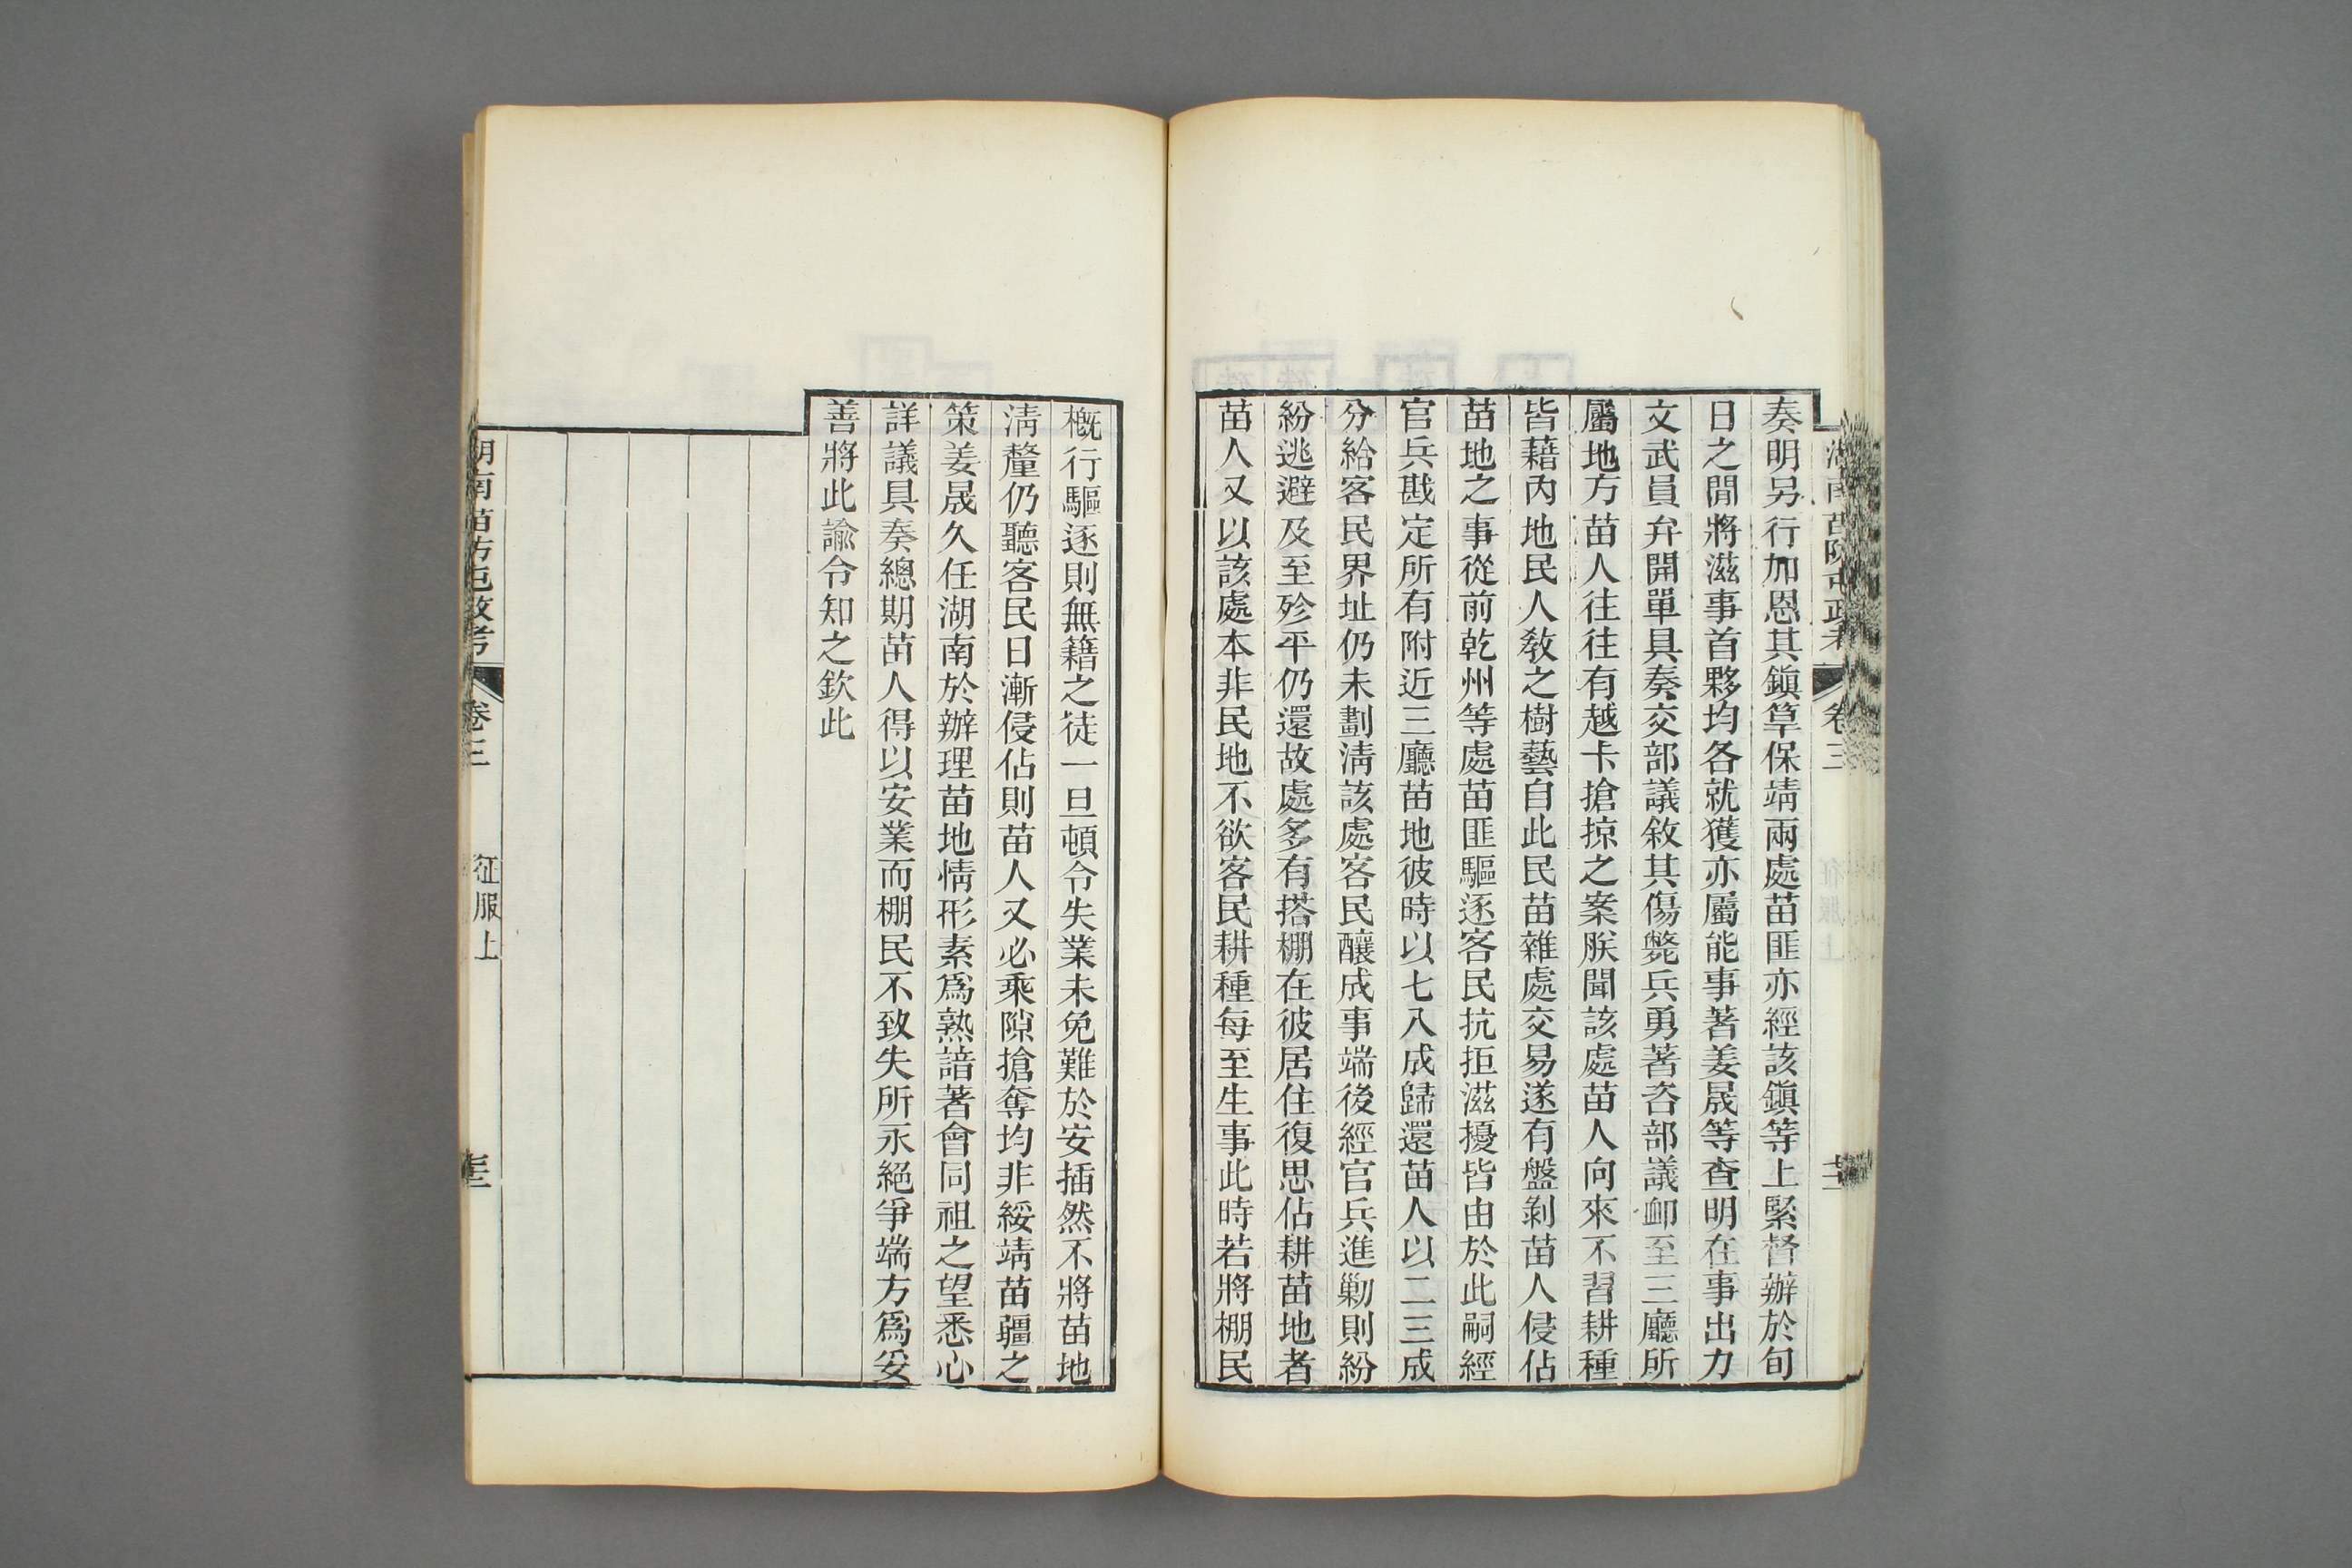 奏明另行加恩其鎭筸保靖兩處苗匪亦經該鎭等上緊督辦於旬
日之間將滋事首夥均各就獲亦屬能事著姜晟等查明在事出力
文武員弁開單具奏交部議敘其傷斃兵勇著咨部議卹至三廳所
屬地方苗人往往有越卡搶掠之案朕聞該處苗人向來不習耕種
皆藉內地民人敎之樹藝自此民苗雜處交易遂有盤剝苗人侵佔
苗地之事從前乾州等處苗匪驅逐客民抗拒滋擾皆由於此嗣經
官兵戡定所有附近三廳苗地彼時以七八成歸還苗人以二三成
分給客民界址仍未劃淸該處客民釀成事端後經官兵進勦則紛
紛逃避及至殄平仍還故處多有搭棚在彼居住復思佔耕苗地者
苗人又以該處本非民地不欲客民耕種每至生事此時若將棚民
槪行驅逐則無籍之徒一旦頓令失業未免難於安插然不將苗地
淸釐仍聽客民日漸侵佔則苗人又必乘隙搶奪均非綏靖苗疆之
策姜晟久任湖南於辦理苗地情形素爲熟諳著會同祖之望悉心
詳議具奏總期苗人得以安業而棚民不致失所永絕爭端方爲妥
善將此諭令知之欽此
湖南苗防屯政考
卷三
征服上